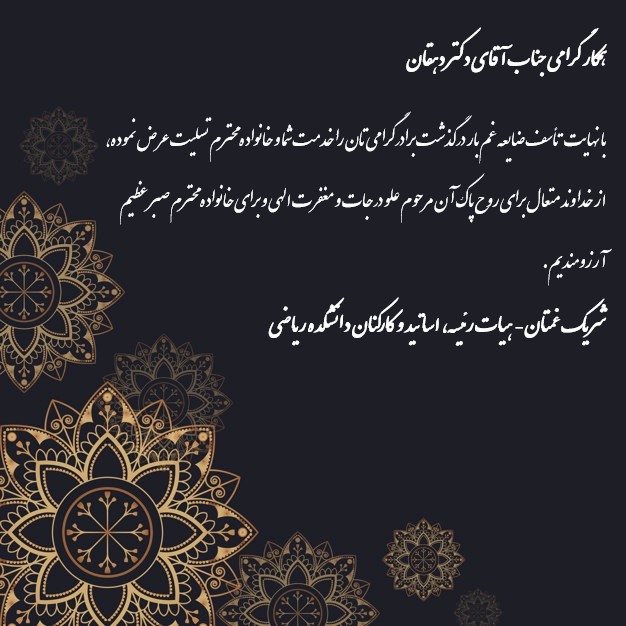 همکار گرامی جناب آقای دکتر دهقان
بانهایت تأسف ضایعه غم بار درگذشت برادر گرامی تان را خدمت شما و خانواده محترم تسلیت عرض نموده،
از خداوند متعال برای روح پاک آن مرحوم علو درجات و مغفرت الهی و برای خانواده محترم صبر عظیم
آرزومندیم.
شریک غمتان - هیات رئیسه، اساتید و کارکنان دانشکده ریاضی